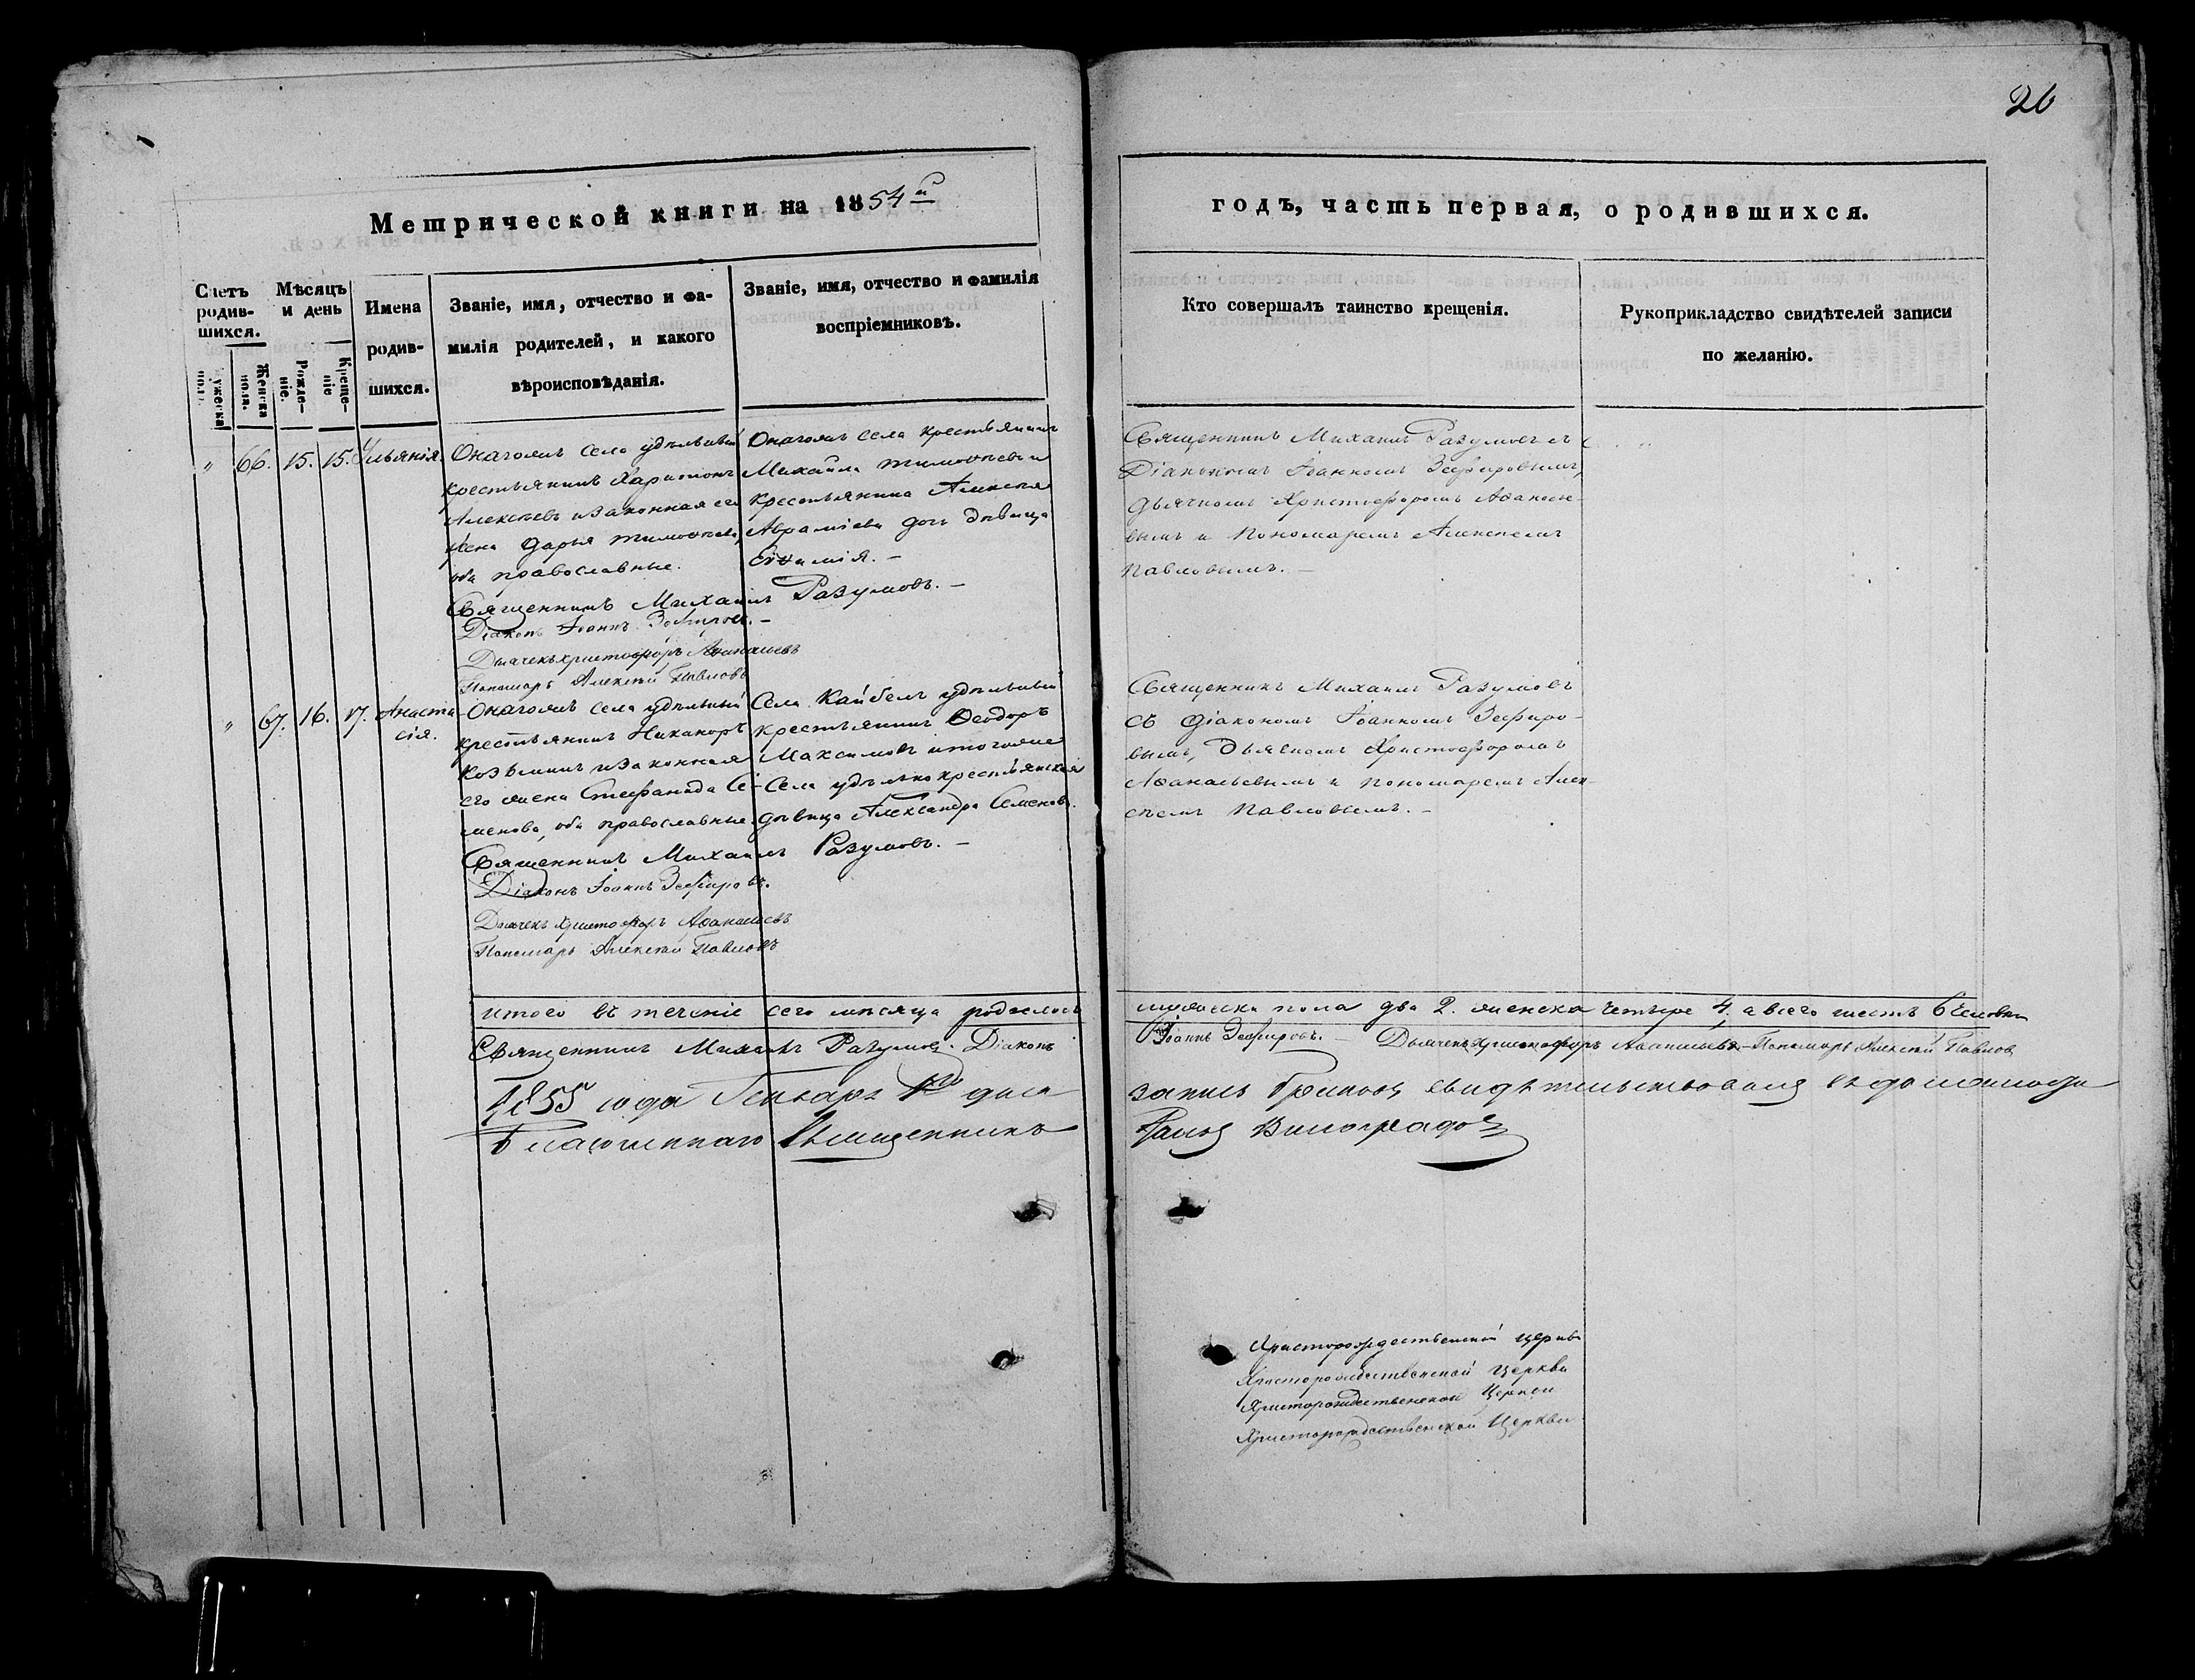 26
Метрической книги на 1854й
годъ, часть первая, о родившихся.
Счетъ родив-шихся.
Мѣсяцъ и день
Имена родив-шихся.
Званіе, имя, отчество и фа-
милія родителей, и какого
вѣроисповѣданія.
Званіе, имя, отчество и фамилія
воспріемниковъ.
Кто совершалъ таинство крещенія.
Рукоприкладство свидѣтелей записи
по желанію.
ужеска пола.
Женска пола.
Рожде-ніе.
Креще-ніе
" 66. 15. 15. Ульянія.
Онагожъ села удѣльный
крестьянинъ Харитонъ
Алексѣевъ и законная его
жена Дарья Тимоѳеева,
оба православные.
Онагожъ села крестьянинъ
Михаилъ Тимоѳеевъ и
крестьянина Алексѣя
Авраміева дочь дѣвица
Евѳимія. —
Священникъ Михаилъ Разумовъ. —
Діаконъ Іоаннъ Зефировъ. —
Дьячекъ Христофоръ Аѳанасьевъ
Пономарь Алексѣй Павловъ
Священникъ Михаилъ Разумовъ съ
Діакономъ Іоанномъ Зефировымъ,
дьячкомъ Христофоромъ Аѳанасье-
вымъ и Пономаремъ Алексѣемъ
Павловымъ. —
" 67. 16. 17. Анаста-
сія.
Онагожъ села удѣльный
крестьянинъ Никаноръ
Козьминъ и законная
его жена Стефанида Се-
менова, оба православные.
Села Кайбелъ удѣльный
крестьянинъ Ѳеодоръ
Максимовъ и тогоже
села удѣльно крестьянская
дѣвица Александра Семенова.
Священникъ Михаилъ Разумовъ. —
Діаконъ Іоаннъ Зефировъ.
Дьячекъ Христофоръ Аѳанасьевъ
Пономарь Алексѣй Павловъ
Священникъ Михаилъ Разумовъ
съ діакономъ Іоанномъ Зефиро-
вымъ, дьячкомъ Христофоромъ
Аѳанасьевымъ и пономаремъ Алек-
сѣемъ Павловымъ. —
Итого въ теченіе сего мѣсяца родилось мужеска пола два 2. женска четыре 4, а всего шесть 6 человѣкъ
Священникъ Михаилъ Разумовъ. Діаконъ Іоаннъ Зефировъ. — Дьячекъ Христофоръ Аѳанасьевъ — Пономарь Алексѣй Павловъ
1855 года Генваря дня запись свидѣтельствовалъ
Благочинный Священникъ Виноградовъ
Христорождественской церкви
Христорождественской Церкви
Христорождественской Церкви
Христорождественской Церкви